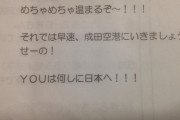 めちゃめちゃ温まるぞ〜！！！
それでは早速、成田空港にいきましょう
せーの！
ＹＯＵは何しに日本へ！！！